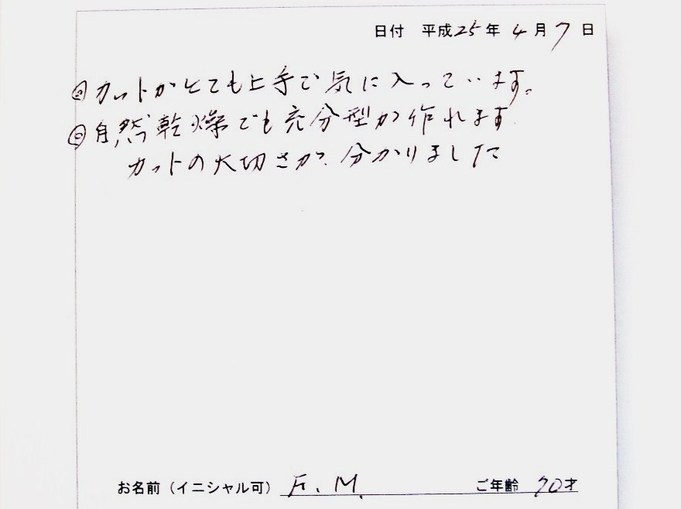 日付 平成25年4月7日
◎カットがとても上手で気に入っています。
◎自然乾燥でも充分型が作れます
カットの大切さが分かりました
お名前（イニシャル可） F.M. ご年齢 70才